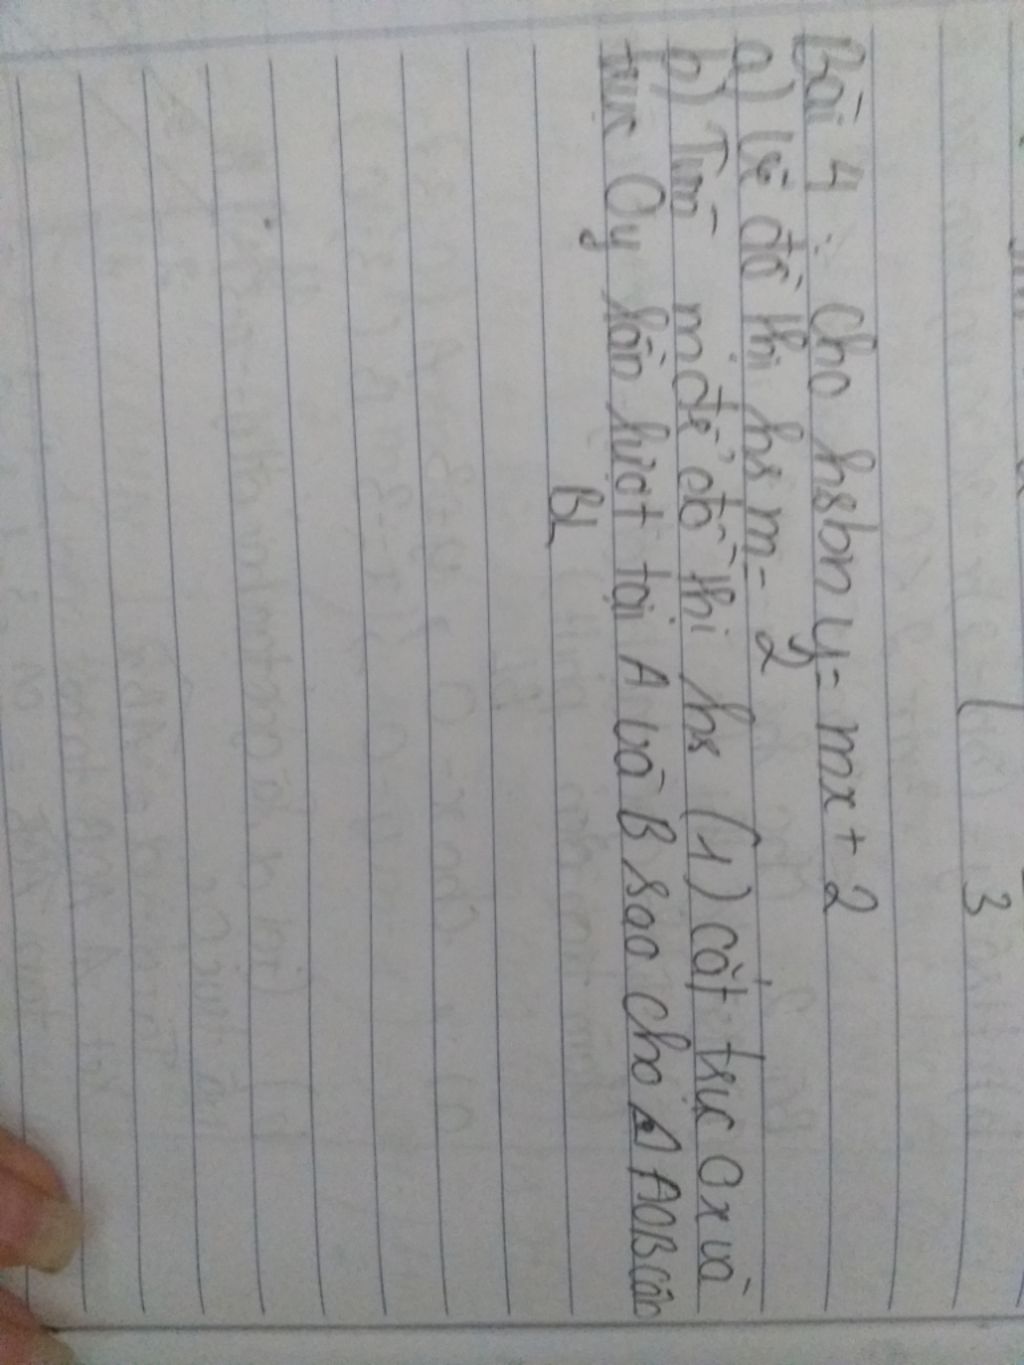 3
Bài 4: Cho hsbn y = mx + 2
a) Vẽ đồ thị hs m = 2
b) Tìm m để đồ thị hs (1) cắt trục Ox và
trục Oy lần lượt tại A và B sao cho Δ AOB cân
BL